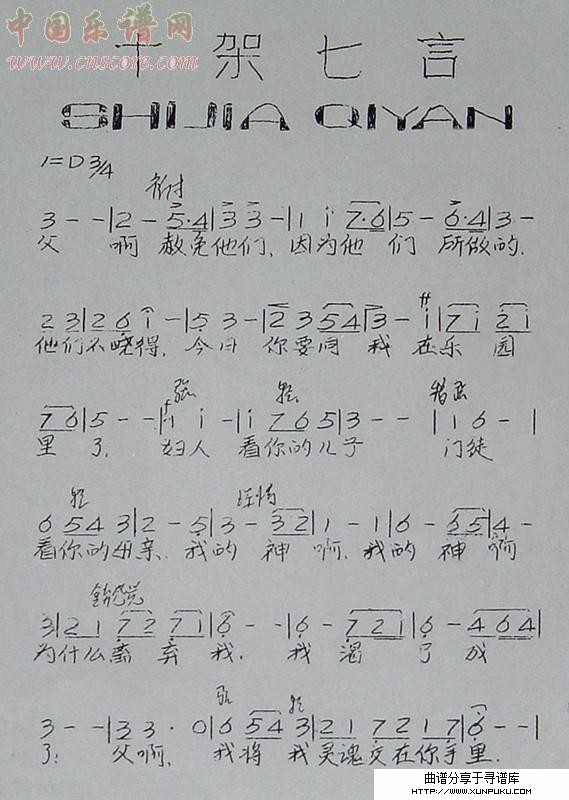 中国乐谱网
www.cnscore.com
十架七言
SHIJIA QIYAN
1=D 3/4
3 - - | 2 - 5·4 | 3 3 - | 1 i 7·6 | 5 - 6·4 | 3 -
父 啊 赦免他们, 因为他 们 所做的.
2 3 | 2 6 i - | 5 3 - | 2 3 5 4 | 3 - i | 7 i 2 i
ff
他们不晓得. 今日 你要同 我 在乐 园
7 6 | 5 - - | i i - | i 7 6 5 | 3 - - | 1 6 - |
f
里 了. 妇人 看你的儿子 门徒
6 5 4 3 | 2 - 5 | 3 - 3 2 | 1 - 1 | 6 - 6 5 | 4 -
看你的母亲. 我的 神 啊. 我的 神 啊
3 | 2 1 7 2 7 1 | 6 - - | 6 - 7 2 1 | 6 - 4 6 4 |
为什么离 弃 我. 我 渴 了 成
3 - - | 3 3 · 0 | 6 5 4 3 | 2 1 7 2 1 7 | 6 - - |
了; 父啊, 我将 我灵魂交在你手里.
曲谱分享于寻谱库
HTTP://WWW.XUNPUKU.COM